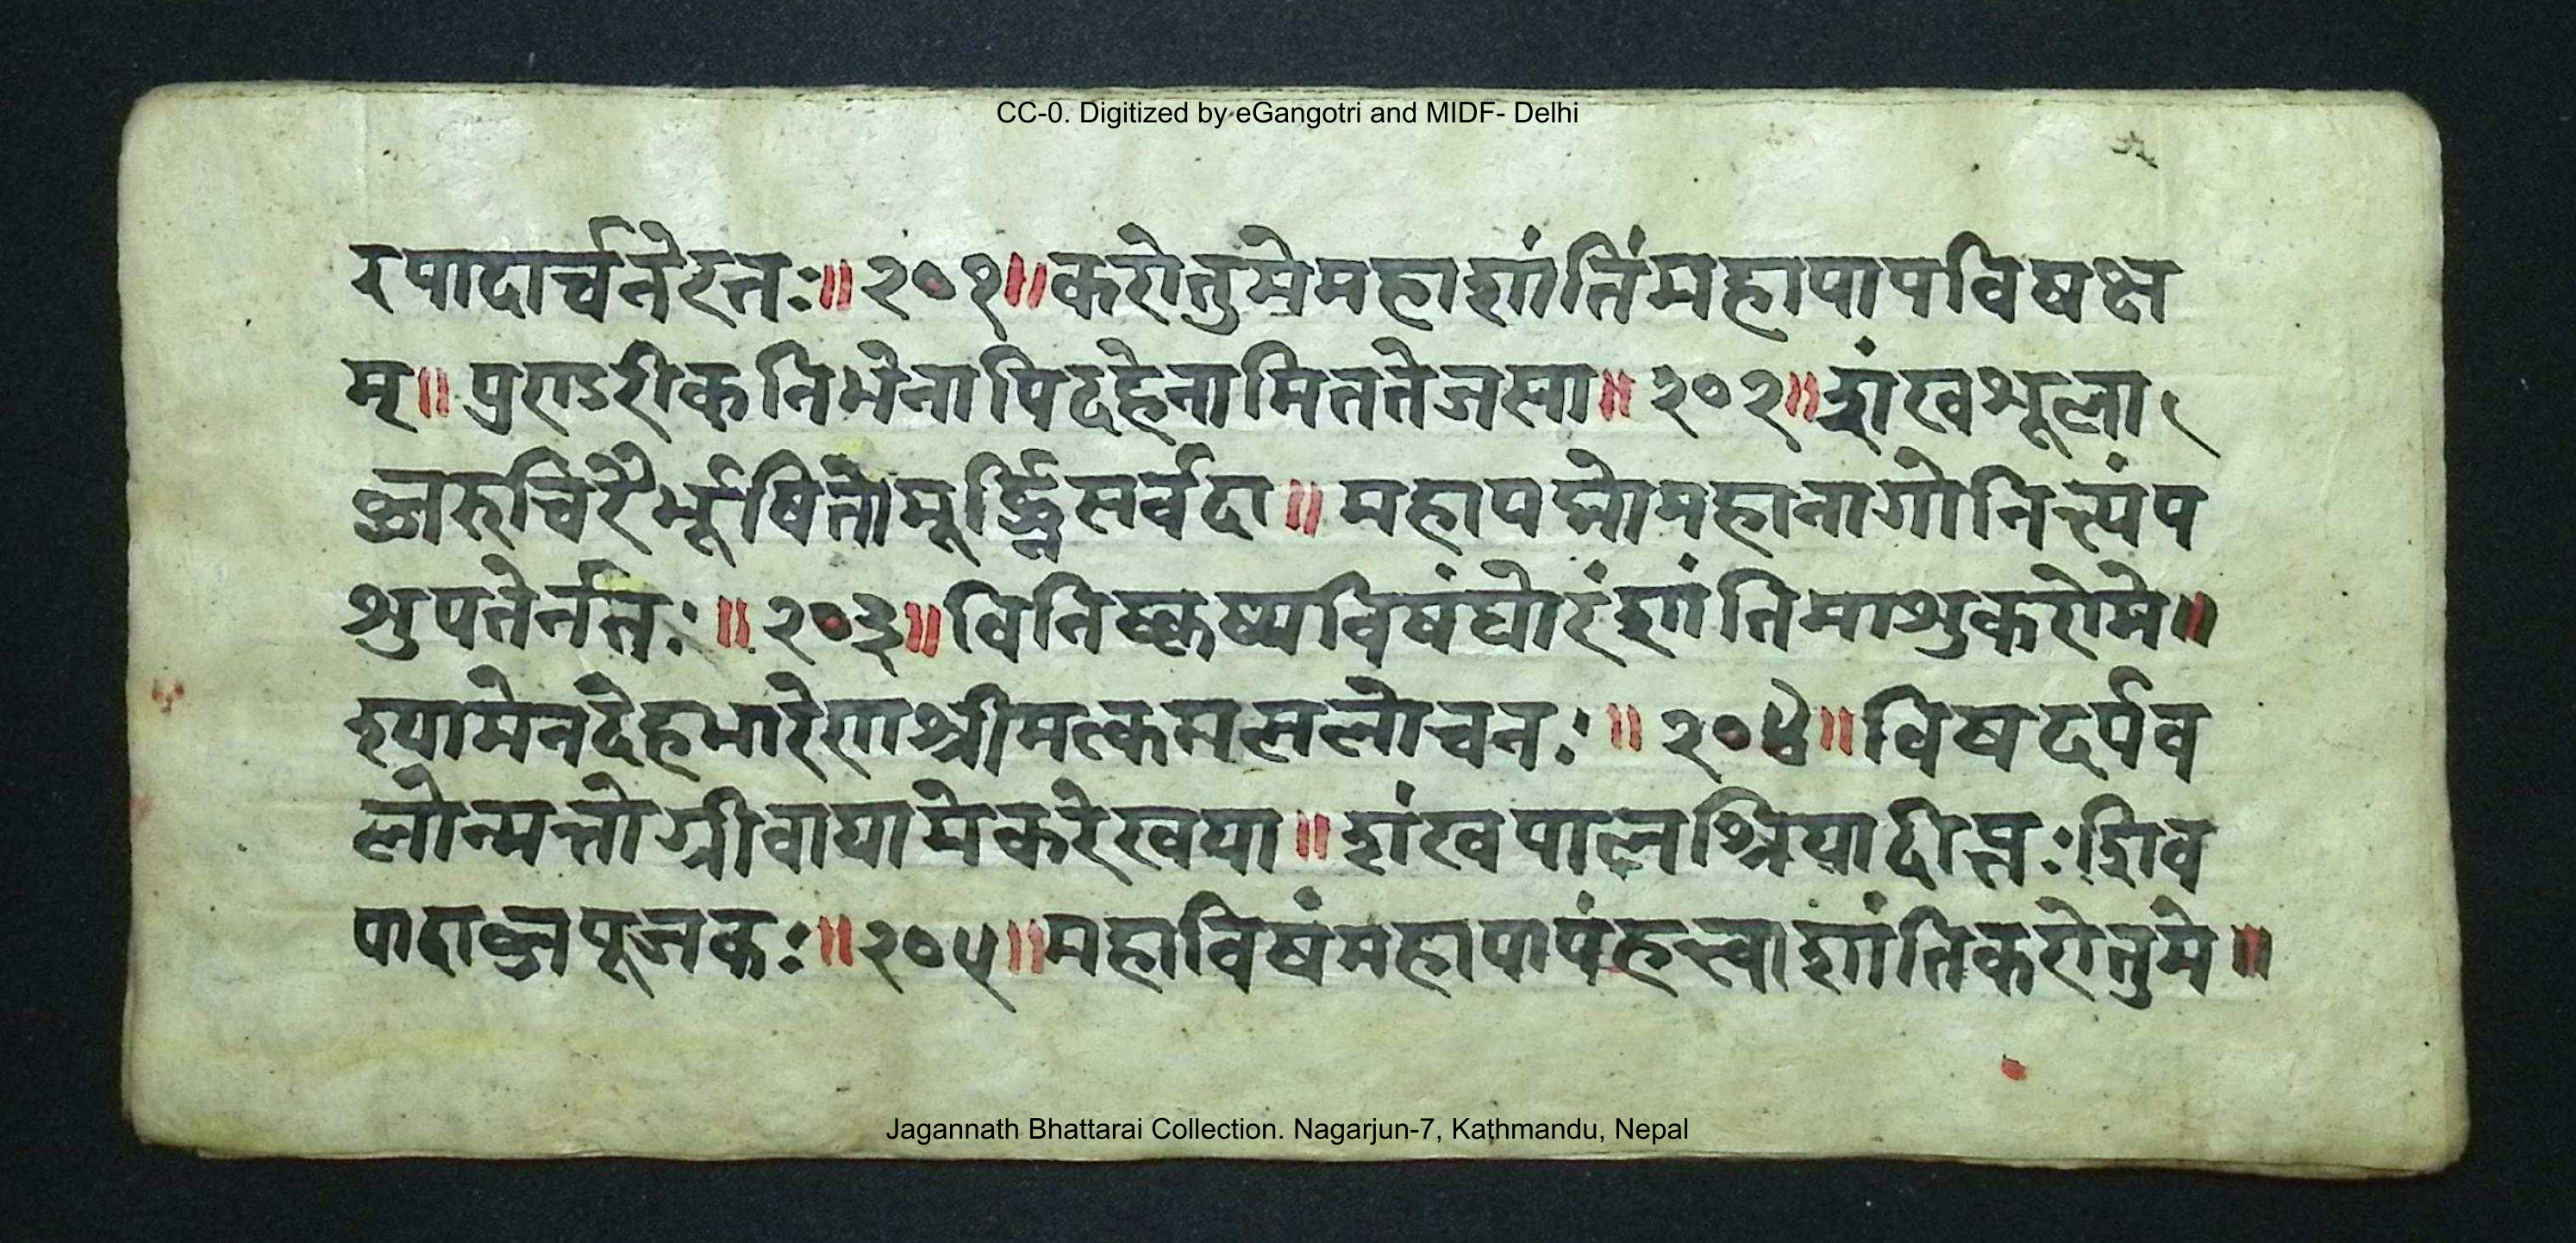 CC-0. Digitized by eGangotri and MIDF- Delhi
रपादार्चनेरतः॥२०१॥करोतुमेमहाशांतिंमहापापविषक्ष
म्॥पुराडरीकनिभेनापिदहेनामिततेजसा॥२०२॥शंखशूला
ब्जरुचिरैर्भूषितोमूर्द्ध्निसर्वदा॥महापद्मोमहानागोनित्यंप
शुपतेर्नतः॥२०३॥विनिष्कृष्यविषंघोरंशांतिमाशुकरोमे॥
श्यामेनदेहभारेणश्रीमत्कमललोचनः॥२०४॥विषदर्पव
लोन्मत्तोग्रीवायामेकरेखया॥शंखपालश्रियादीप्तःशिव
पादाब्जपूजकः॥२०५॥महाविषंमहापापंहत्त्वाशांतिकरोतुमे॥
Jagannath Bhattarai Collection. Nagarjun-7, Kathmandu, Nepal